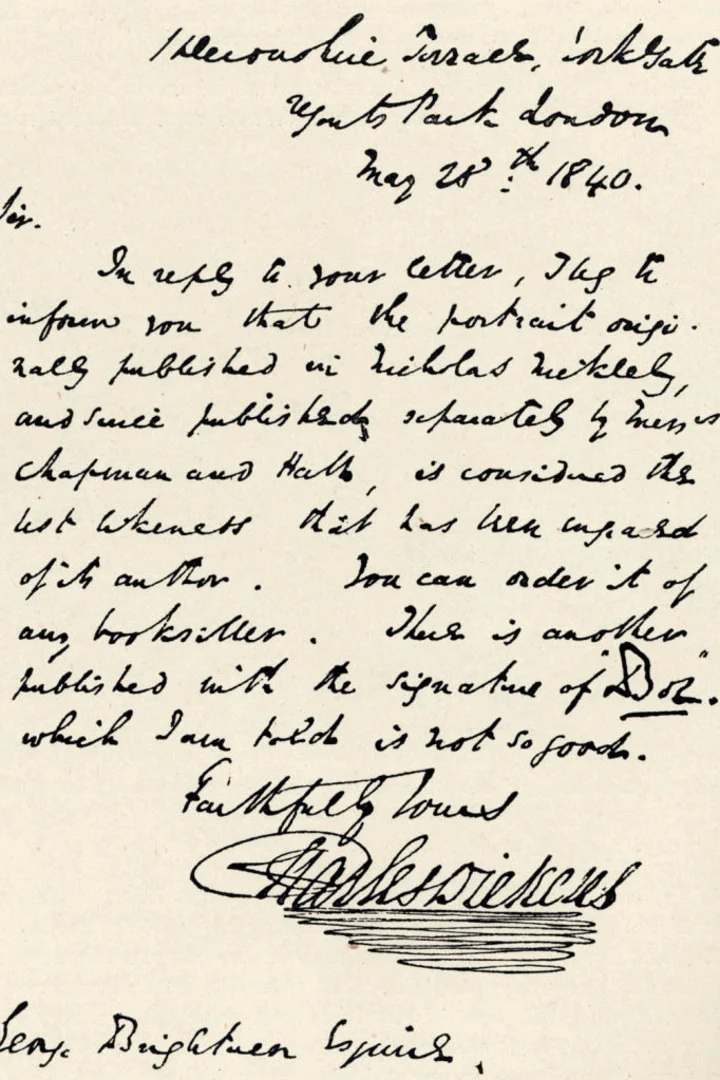 1 Devonshire Terrace, York Gate
Regents Park London
May 28th. 1840.
Sir.
In reply to your letter, I beg to
inform you that the portrait origi-
nally published in Nicholas Nickleby,
and since published, separately by Messrs
Chapman and Hall, is considered the
best likeness that has been engraved
of its author. You can order it of
any bookseller. There is another
published with the signature of "Boz".
which I am told is not so good.
Faithfully Yours
Charles Dickens
George Brightwen Esquire.